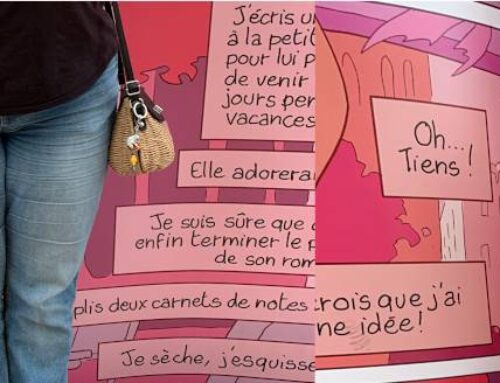 J'écris u
à la petit
pour lui p
de venir
jours per
vacances
Elle adorera
Je suis sûre que
enfin terminer le p
de son rom
plis deux carnets de notes
Je sèche, j'esquisse
Oh...
Tiens !
crois que j'ai
ne idée !